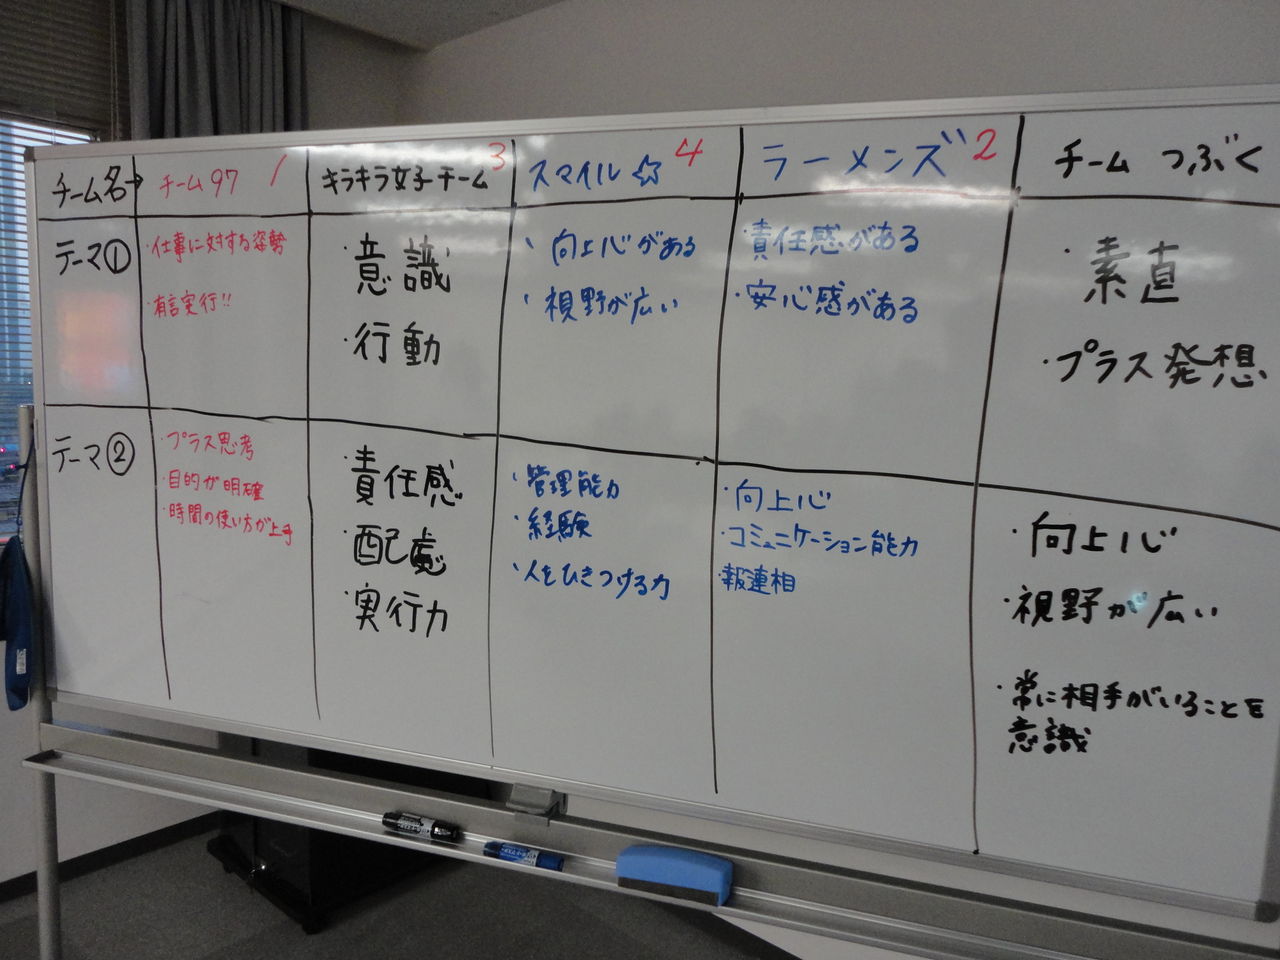 チーム名→
チーム97 1
キラキラ女子チーム 3
スマイル☆ 4
ラーメンズ 2
チーム つぶく
テーマ①
・仕事に対する姿勢
・有言実行!!
・意識
・行動
・向上心がある
・視野が広い
・責任感がある
・安心感がある
・素直
・プラス発想
テーマ②
・プラス思考
・目的が明確
・時間の使い方が上手
・責任感
・配慮
・実行力
・管理能力
・経験
・人をひきつける力
・向上心
・コミュニケーション能力
・報連相
・向上心
・視野が広い
・常に相手がいることを
意識